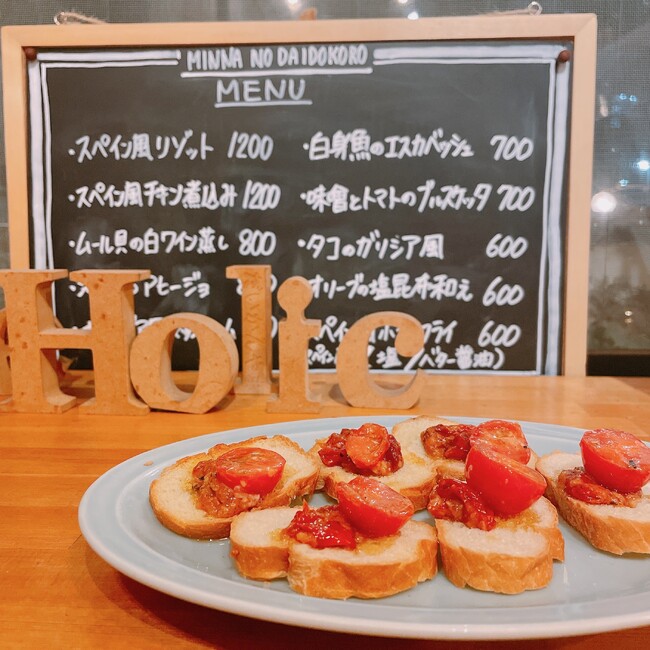 MINNA NO DAIDOKORO
MENU
・スペイン風リゾット 1200
・スペイン風チキン煮込み 1200
・ムール貝の白ワイン蒸し 800
アヒージョ
・白身魚のエスカベッシュ 700
・味噌とトマトのブルスケッタ 700
・タコのガリシア風 600
オリーブの塩昆布和え 600
フライ 600
塩/バター醤油)
Holic